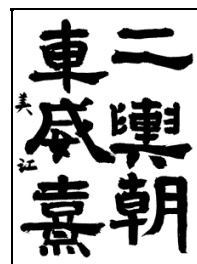 二輿朝
車威熹
美江